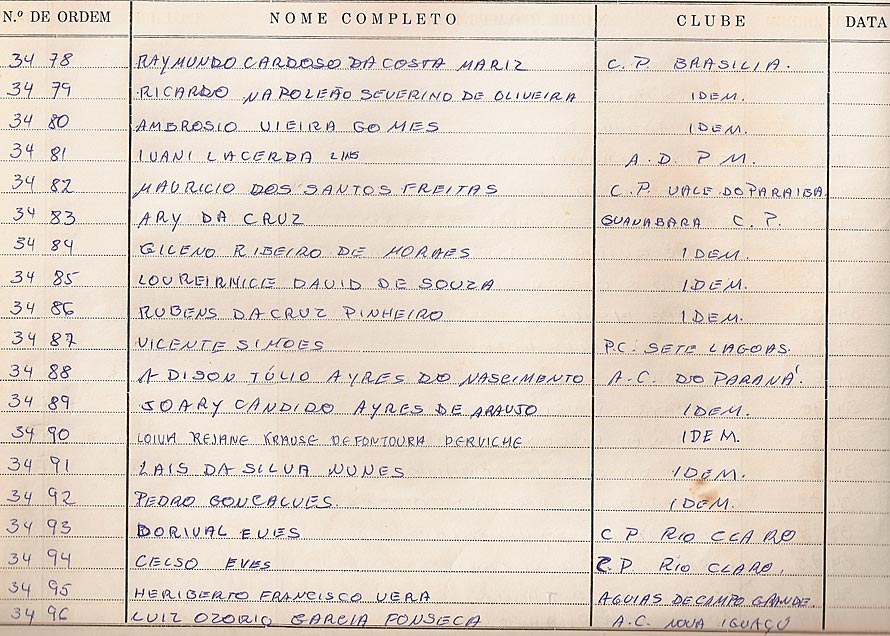 N.º DE ORDEM NOME COMPLETO CLUBE DATA
34 78 RAYMUNDO CARDOSO DA COSTA MARIZ C. P. BRASILIA.
34 79 RICARDO NAPOLEÃO SEVERINO DE OLIVEIRA IDEM.
34 80 AMBROSIO VIEIRA GOMES IDEM.
34 81 IVANI LACERDA LINS A. D. P M.
34 82 MAURICIO DOS SANTOS FREITAS C. P. VALE DO PARAIBA.
34 83 ARY DA CRUZ GUANABARA C. P.
34 84 GILENO RIBEIRO DE MORAES IDEM.
34 85 LOUREIRNICE DAVID DE SOUZA IDEM.
34 86 RUBENS DA CRUZ PINHEIRO IDEM.
34 87 VICENTE SIMOES P.C. SETE LAGOAS.
34 88 ADISON TÓLIO AYRES DO NASCIMENTO A.C. DO PARANÁ.
34 89 JOARY CANDIDO AYRES DE ARAUJO IDEM.
34 90 LOIVA REJANE KRAUSE DEFONTOURA DERVICHE IDEM.
34 91 LAIS DA SILVA NUNES IDEM.
34 92 PEDRO GONCALVES. IDEM.
34 93 DORIVAL EVES C P RIO CLARO
34 94 CELSO EVES C.P. RIO CLARO.
34 95 HERIBERTO FRANCISCO VERA AGUIAS DE CAMPO GRANDE.
34 96 LUIZ OZORIO GARCIA FONSECA A.C. NOVA IGUAÇÚ